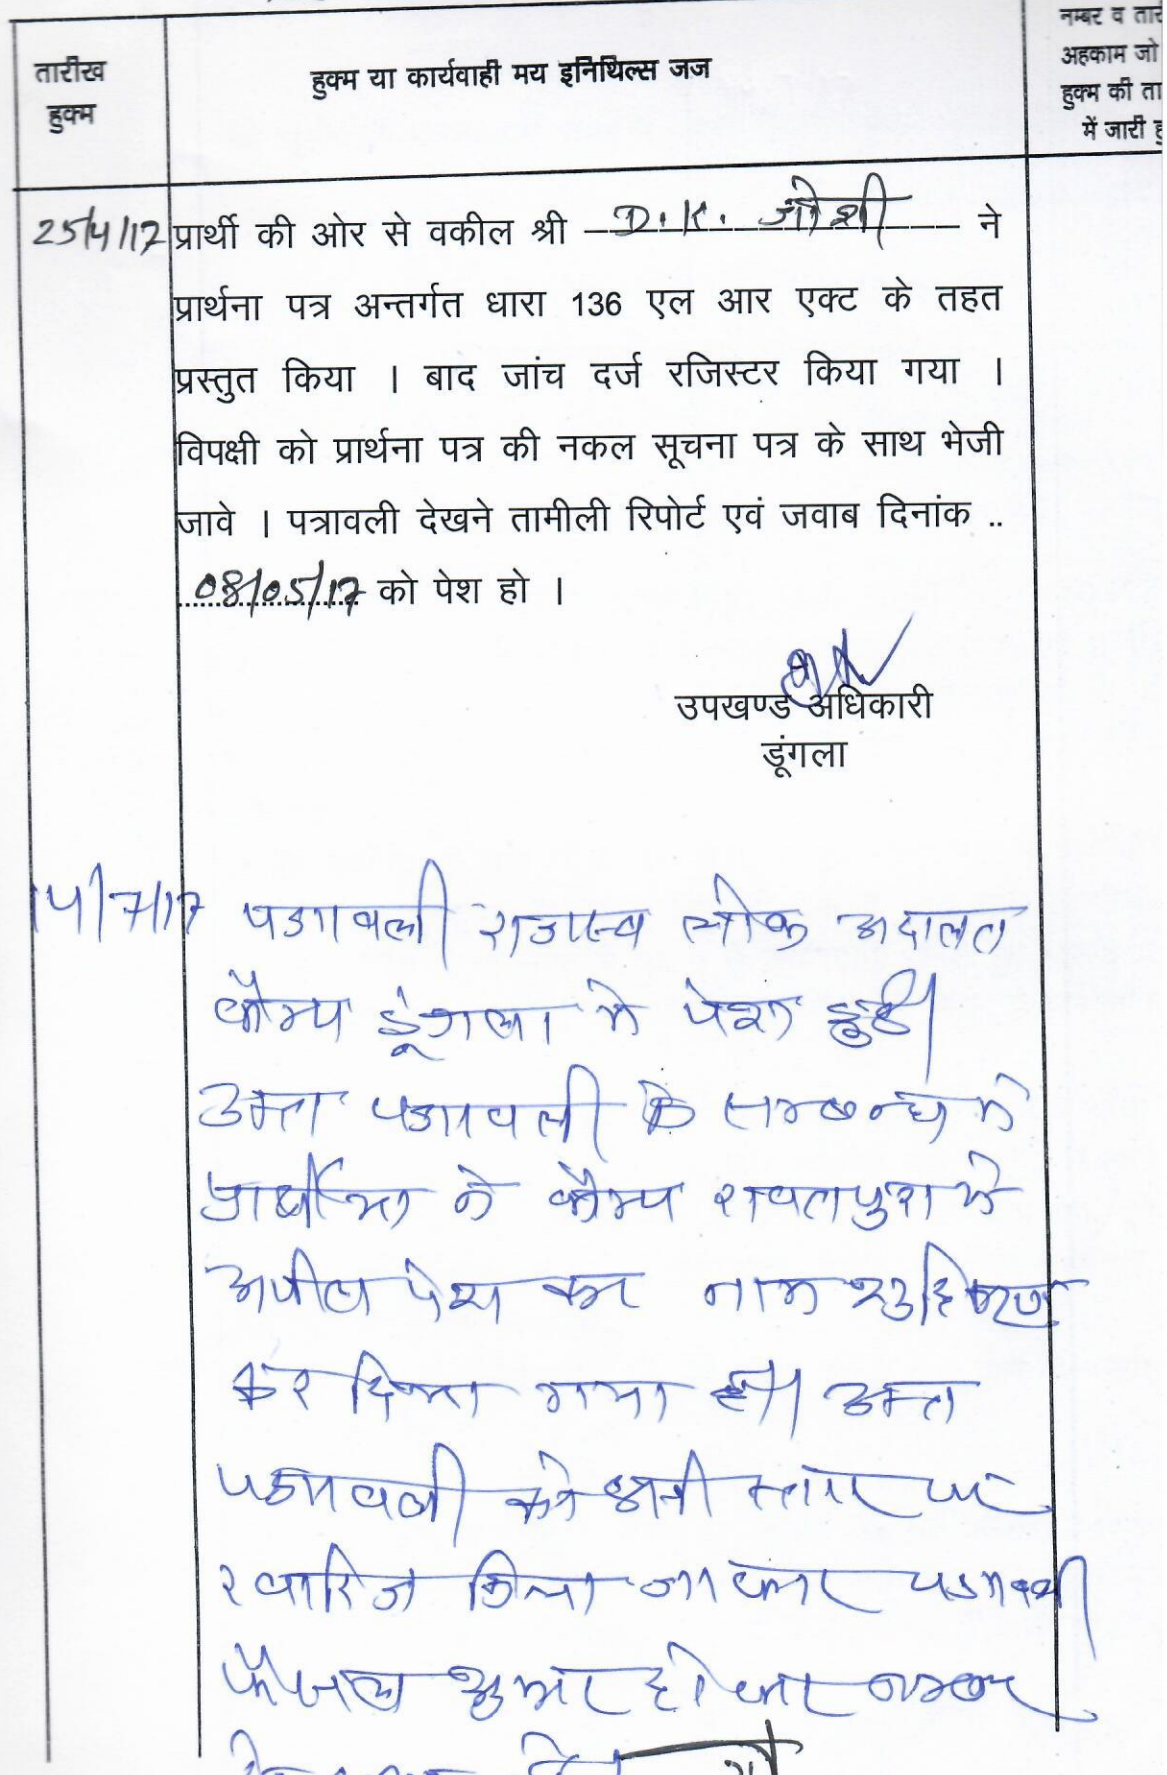 तारीख
हुक्म
हुक्म या कार्यवाही मय इनिथिल्स जज
नम्बर व तारी
अहकाम जो
हुक्म की ता
में जारी हु
25/4/17 प्रार्थी की ओर से वकील श्री D.K. जोशी ने
प्रार्थना पत्र अन्तर्गत धारा 136 एल आर एक्ट के तहत
प्रस्तुत किया । बाद जांच दर्ज रजिस्टर किया गया ।
विपक्षी को प्रार्थना पत्र की नकल सूचना पत्र के साथ भेजी
जावे । पत्रावली देखने तामीली रिपोर्ट एवं जवाब दिनांक ..
08/05/17 को पेश हो ।
उपखण्ड अधिकारी
डूंगला
14/7/17 पत्रावली राजस्व लोक अदालत
कैम्प डूंगला मे पेश हुई।
उक्त पत्रावली के सम्बन्ध मे
प्रार्थीया ने कैम्प रावतपुरा मे
अपील पेश कर नाम शुद्धिकरण
कर दिया गया है। उक्त
पत्रावली को इसी स्तर पर
खारिज किया जाकर पत्रावली
फैसल शुमार होकर नम्बर